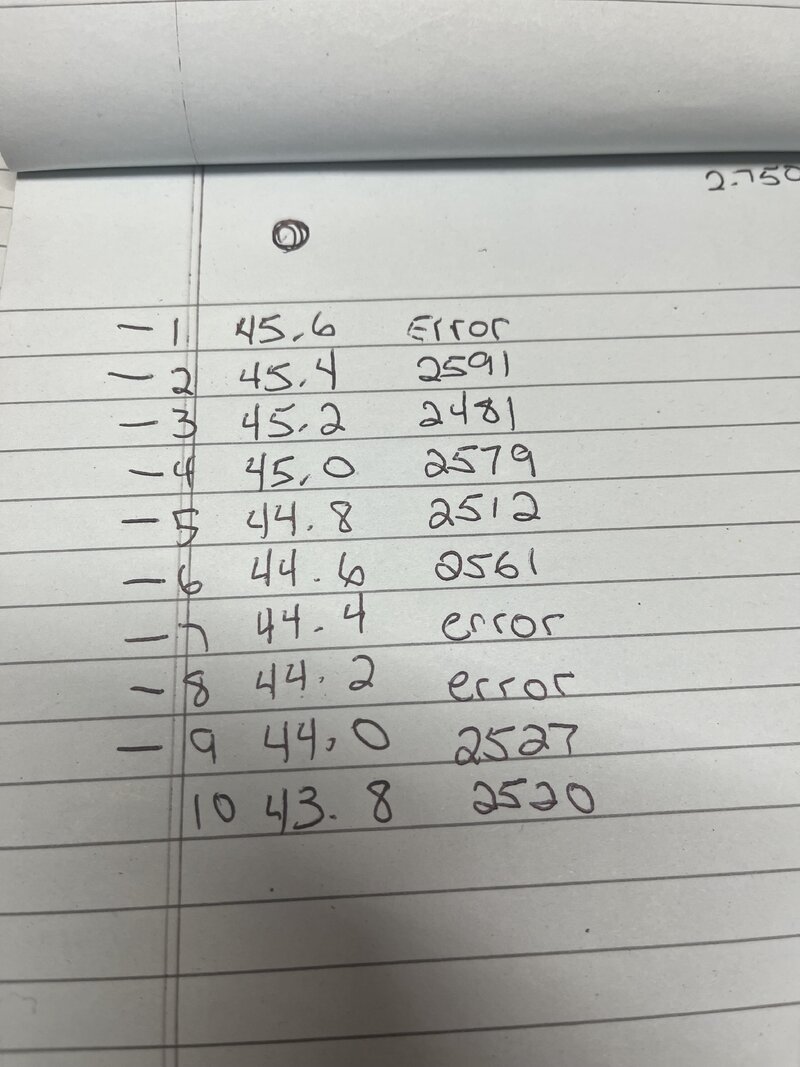 2.750
- 1 45.6 Error
- 2 45.4 2591
- 3 45.2 2481
- 4 45.0 2579
- 5 44.8 2512
- 6 44.6 2561
- 7 44.4 error
- 8 44.2 error
- 9 44.0 2527
10 43.8 2520